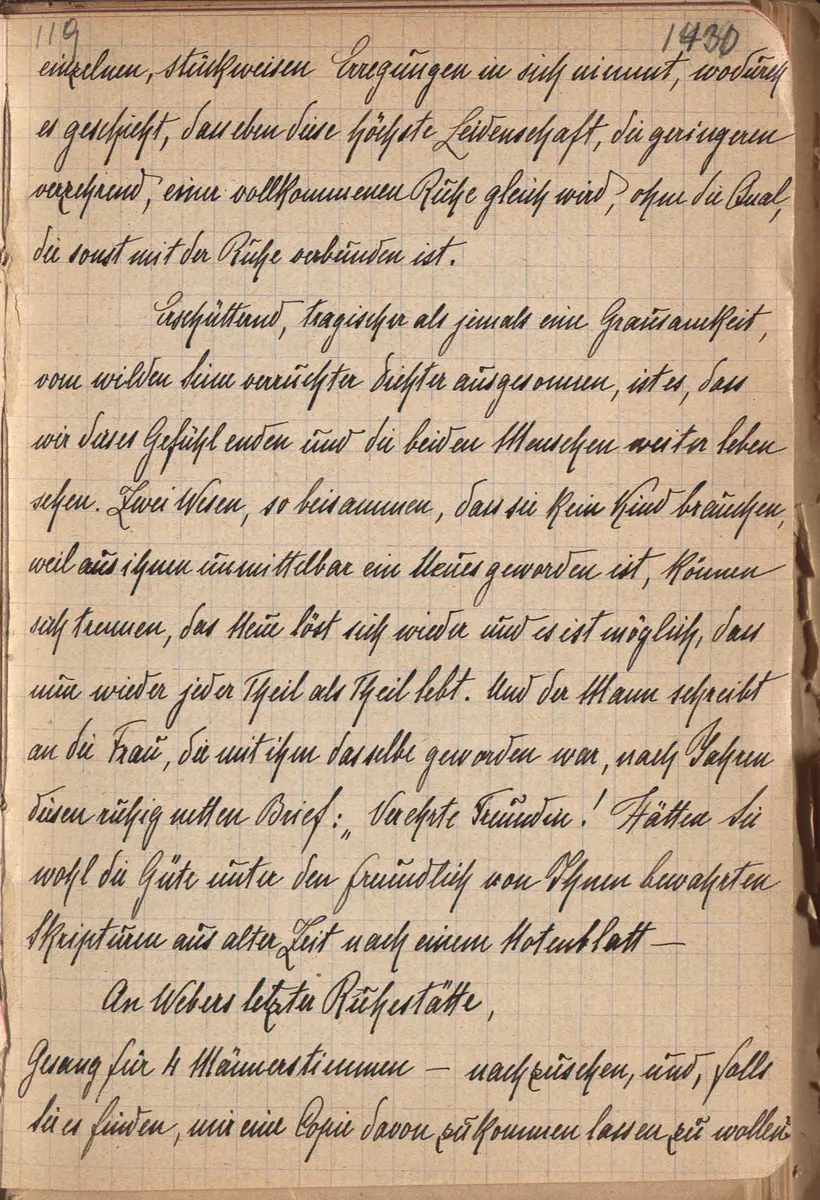 119 1430
einzelnen, stückweisen Erregungen in sich nimmt, wodurch
es geschieht, dass eben diese höchste Leidenschaft, die geringeren
verzehrend, einer vollkommenen Ruhe gleich wird, ohne die Qual,
die sonst mit der Ruhe verbunden ist.
Erschütternd, tragischer als jemals eine Grausamkeit,
vom wilden Sinn verruchter Dichter ausgesonnen, ist es, dass
wir dieses Gefühl enden und die beiden Menschen weiter leben
sehen. Zwei Wesen, so beisammen, dass sie kein Kind brauchen,
weil aus ihnen unmittelbar ein Neues geworden ist, können
sich trennen, das Neue löst sich wieder und es ist möglich, dass
nun wieder jeder Theil als Theil lebt. Und der Mann schreibt
an die Frau, die mit ihm dasselbe geworden war, nach Jahren
diesen ruhig netten Brief: „Verehrte Freundin! Hätten Sie
wohl die Güte unter den freundlich von Ihnen bewahrten
Skripturen aus alter Zeit nach einem Notenblatt —
An Webers letzter Ruhestätte,
Gesang für 4 Männerstimmen — nachzusehen, und, falls
Sie es finden, mir eine Copie davon zukommen lassen zu wollen.